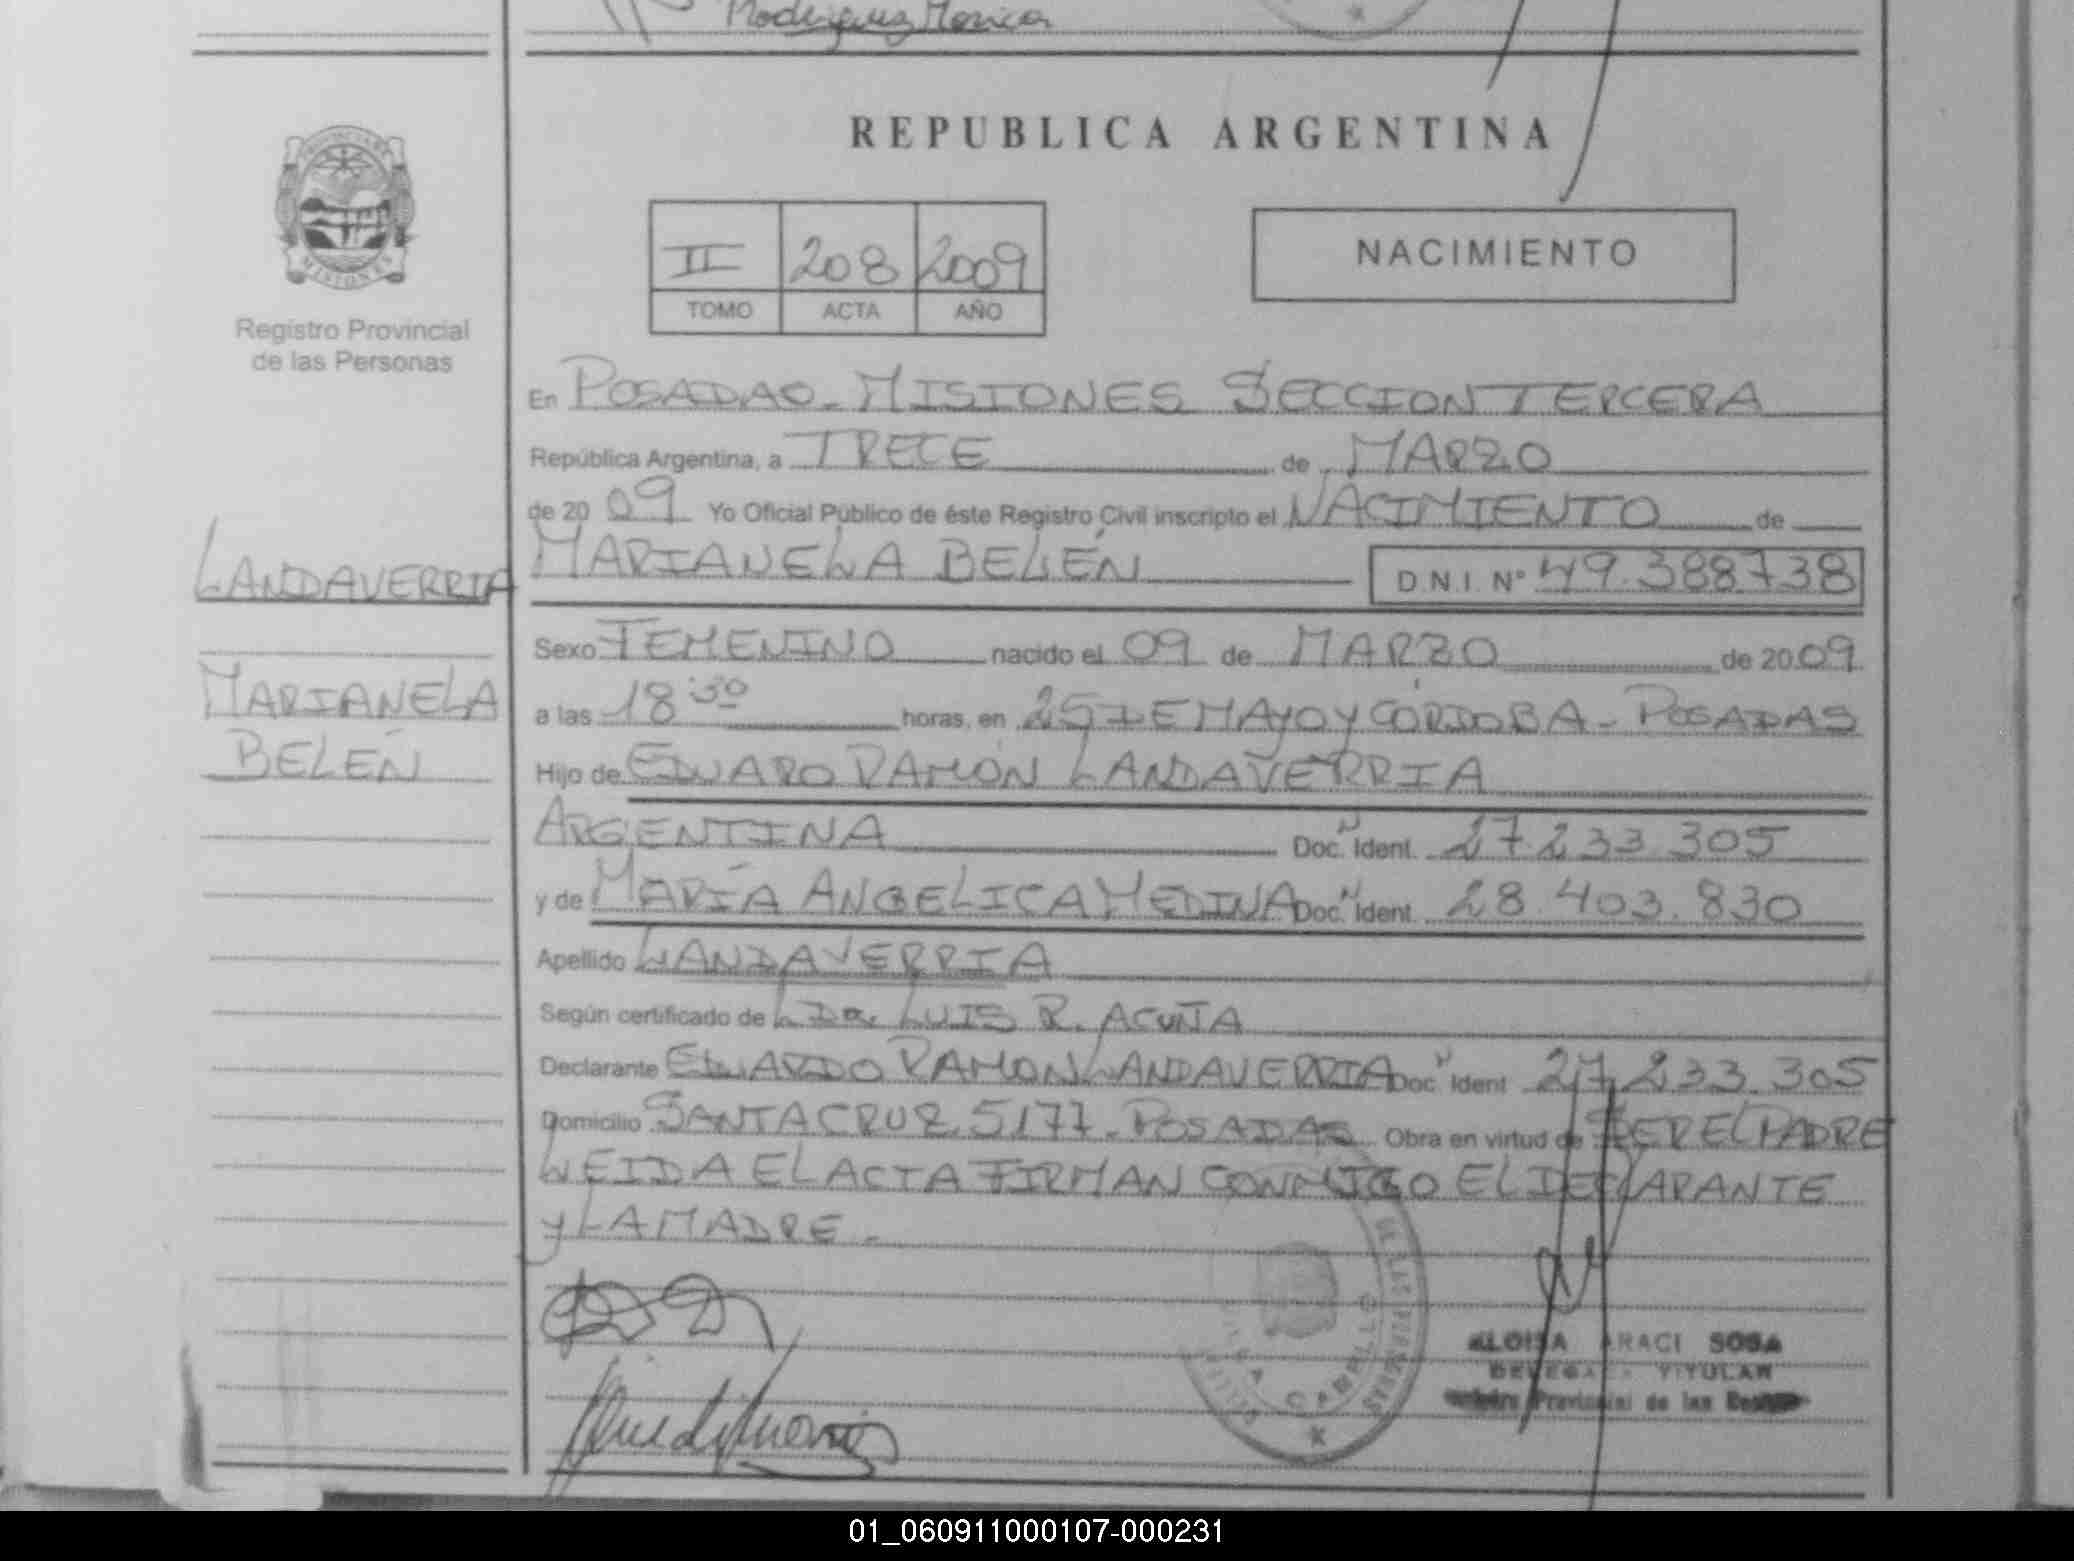 Rodriguez Monica
REPUBLICA ARGENTINA
PROVINCIA DE
MISIONES
Registro Provincial
de las Personas
II 208 2009
TOMO ACTA AÑO
NACIMIENTO
En POSADAS - MISIONES SECCION TERCERA
República Argentina, a TRECE de MARZO
de 20 09 Yo Oficial Público de éste Registro Civil inscripto el NACIMIENTO de
LANDAVERRIA
MARIANELA BELÉN D.N.I. Nº 49.388738
Sexo FEMENINO nacido el 09 de MARZO de 20 09
MARIANELA
BELÉN
a las 18:30 horas, en 25 DE MAYO Y CÓRDOBA - POSADAS
Hijo de EDUARO RAMÓN LANDAVERRIA
ARGENTINA Doc. N Ident. 27.233.305
y de MARÍA ANGELICA MEDINA Doc. N Ident. 28.403.830
Apellido LANDAVERRIA
Según certificado de L Dr. LUIS R. ACUÑA
Declarante EDUARDO RAMON LANDAVERRIA Doc. N Ident 27.233.305
Domicilio SANTA CRUZ 5177 - POSADAS Obra en virtud de SER EL PADRE
LEIDA EL ACTA FIRMAN CONMIGO EL DECLARANTE
Y LA MADRE -
DE LAS PERSONAS
ALOISA ARACI SOSA
DELEGADA TITULAR
Provincial de las
01_060911000107-000231